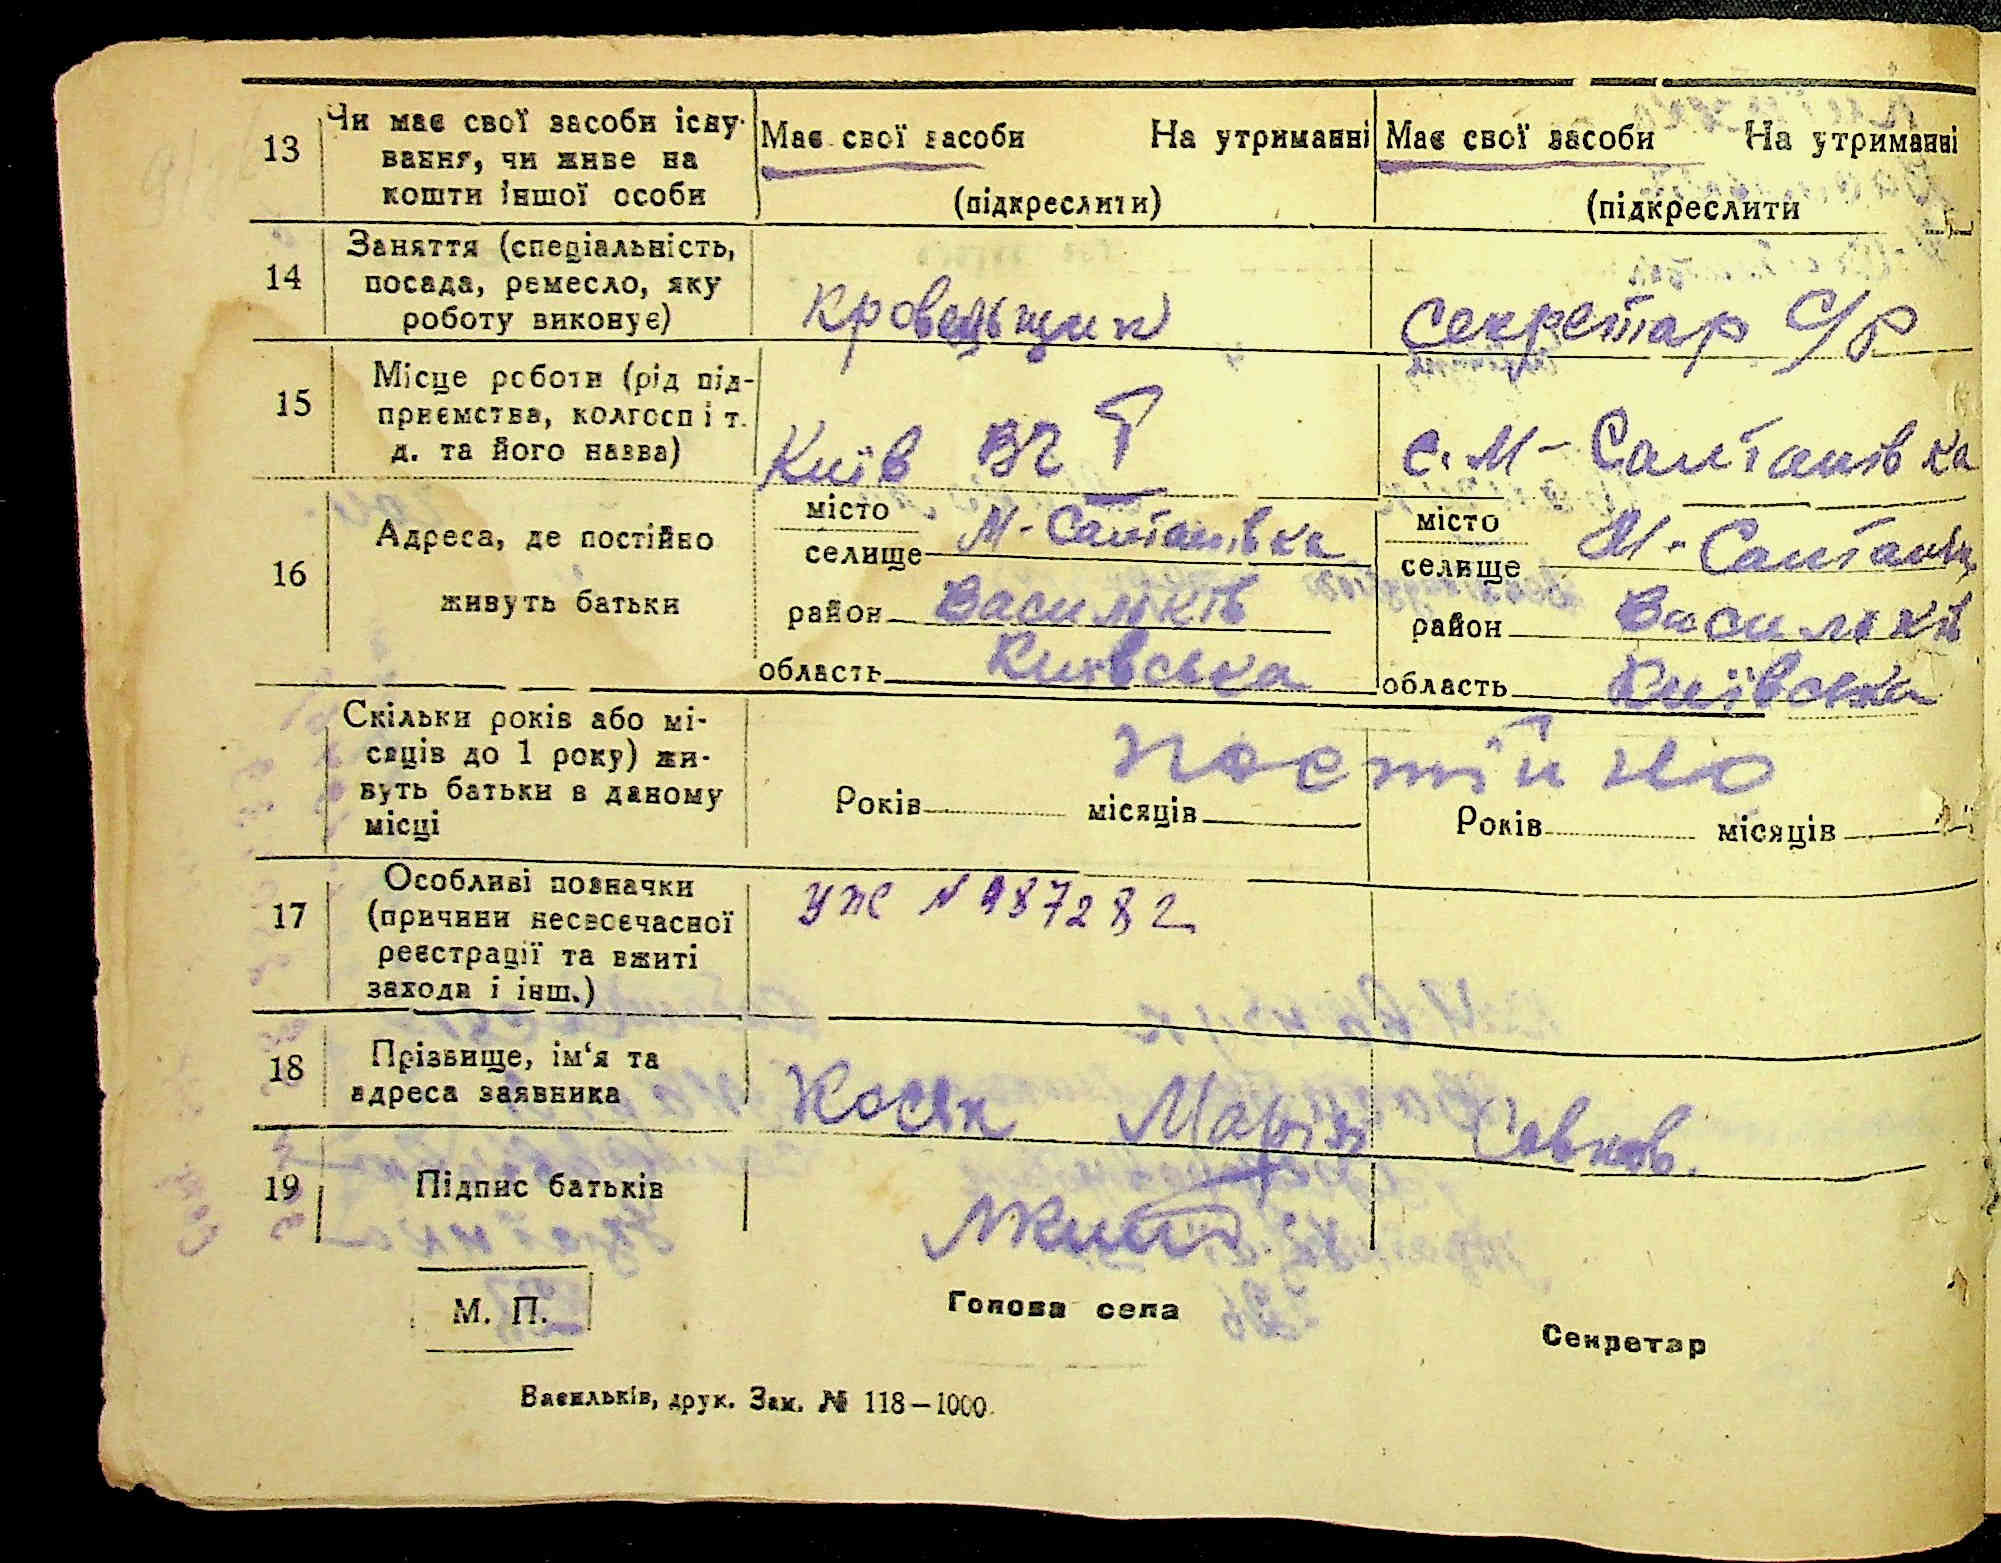 13 Чи має свої засоби існу-
вання, чи живе на
кошти іншої особи
Має свої засоби На утриманні
(підкреслити)
Має свої засоби На утриманні
(підкреслити
14 Заняття (спеціальність,
посада, ремесло, яку
роботу виконує)
кровельщик
секретар С/Р
15 Місце роботи (рід під-
приємства, колгосп і т.
д. та його назва)
Київ ВЧ
с. М-Салтанівка
16 Адреса, де постійно
живуть батьки
місто
селище М-Салтанівка
район Васильків
область Київська
місто
селище М-Салтанів
район Васильків
область Київська
Скільки років або мі-
сяців до 1 року) жи-
вуть батьки в даному
місці
постійно
Років місяців
Років місяців
17 Особливі позначки
(причини несвоєчасної
реєстрації та вжиті
заходи і інш.)
УЖ № 987282
18 Прізвище, ім'я та
адреса заявника
Косяк Марія
19 Підпис батьків
М. П.
Голова села
Секретар
Васильків, друк. Зам. № 118—1000.